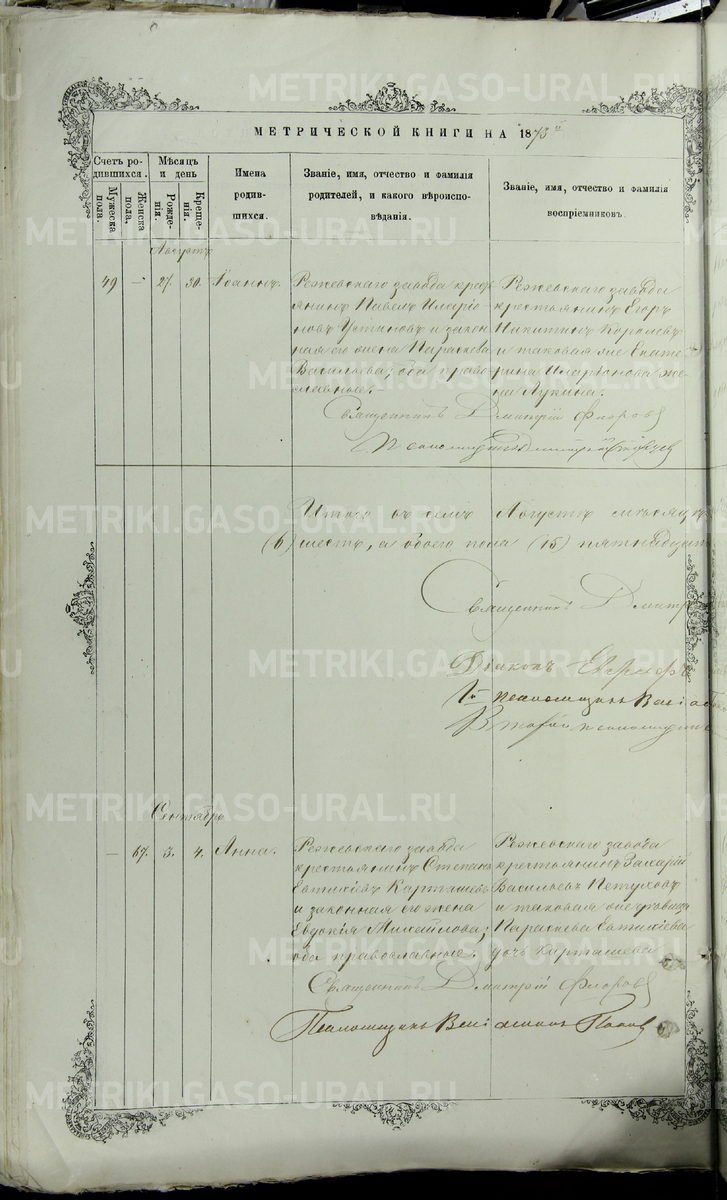 МЕТРИЧЕСКОЙ КНИГИ НА 1873й
Счетъ родившихся.
Мужеска пола.
Женска пола.
Мѣсяцъ и день
Рожденія.
Крещенія.
Имена родившихся.
Званіе, имя, отчество и фамилія родителей, и какого вѣроисповѣданія.
Званіе, имя, отчество и фамилія воспріемниковъ.
Августъ
49 — 27. 30. Іоаннъ.
Режевскаго завода крес
янинъ Павелъ Иларіо
новъ Устиновъ и закон
ная его жена Параскева
Васильева; оба право
славные.
Режевскаго завода
крестьянинъ Егоръ
Никитинъ Королевъ
и таковая же Екате
рина Иларіонова же
на Лукина.
Священникъ Дмитрій Флоровъ
Псаломщикъ Дмитрій
Итого въ семъ Августѣ мѣсяцѣ
(6) шесть, а обоего пола (15) пятнадцат
Священникъ Дмитрі
Діаконъ
1й псаломщикъ Веніа
Второй псаломщикъ
Сентябрь
— 67. 3. 4. Анна.
Режевскаго завода
крестьянинъ Степанъ
Евтихіевъ Карташевъ
и законная его жена
Евдокія Михайлова;
оба православные.
Режевскаго завода
крестьянинъ Захарій
Васильевъ Петуховъ
и таковая же дѣвица
Параскева Евтихіева
дочь Карташева
Священникъ Дмитрій Флоровъ
Псаломщикъ Веніаминъ Поповъ
METRIKI.GASO-URAL.RU